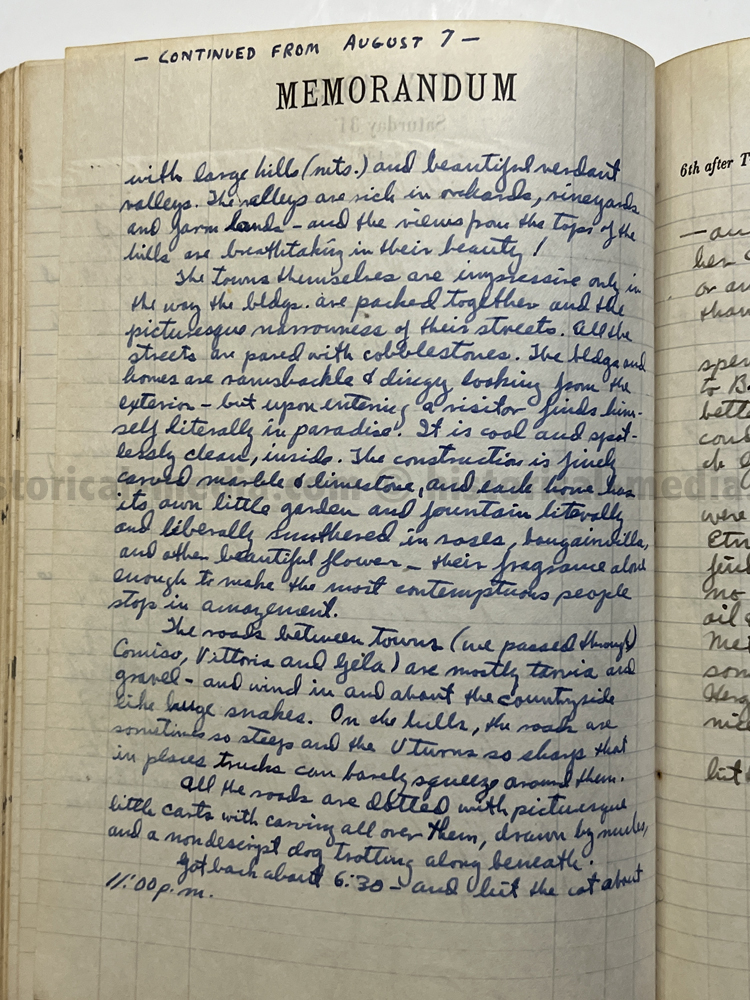 — CONTINUED FROM AUGUST 7 —
MEMORANDUM
Saturday 31
with large hills (mts.) and beautiful verdant
valleys. The valleys are rich in orchards, vineyards
and farm lands – and the views from the tops of the
hills are breathtaking in their beauty!
The towns themselves are impressive only in
the way the bldgs. are packed together and the
picturesque narrowness of their streets. All the
streets are paved with cobblestones. The bldgs and
homes are ramshackle & dingy looking from the
exterior – but upon entering a visitor finds him-
self literally in paradise. It is cool and spot-
lessly clean, inside. The construction is finely
carved marble & limestone, and each home has
its own little garden and fountain literally
and liberally smothered in roses, bougainvilla,
and other beautiful flower – their fragrance alone
enough to make the most contemptuous people
stop in amazement.
The roads between towns (we passed through
Comiso, Vittoria and Gela) are mostly tarvia and
gravel – and wind in and about the countryside
like huge snakes. On the hills, the roads are
sometimes so steep and the U turns so sharp that
in places trucks can barely squeeze around them.
All the roads are dotted with picturesque
little carts with carving all over them, drawn by mules,
and a nondescript dog trotting along beneath.
Got back about 6:30 – and hit the cot about
11:00 p.m.
6th after T
— an
her
or an
than
sper
to B
bette
were
Etn
no
oil
Met
som
nice
but